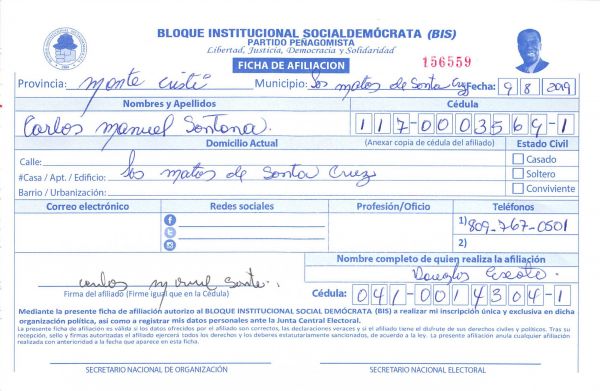 BLOQUE INSTITUCIONAL SOCIALDEMÓCRATA (BIS)
PARTIDO PEÑAGOMISTA
Libertad, Justicia, Democracia y Solidaridad
FICHA DE AFILIACION
156559
Provincia: Monte Cristi Municipio: Las matas de Santa Cruz Fecha: 9 8 2019
Nombres y Apellidos Cédula
Carlos manuel Santana. 117-0003569-1
Domicilio Actual (Anexar copia de cédula del afiliado) Estado Civil
Calle: Casado
#Casa / Apt. / Edificio: Las matas de Santa Cruz Soltero
Barrio / Urbanización: Conviviente
Correo electrónico Redes sociales Profesión/Oficio Teléfonos
1) 809-767-0501
2)
Nombre completo de quien realiza la afiliación
carlos manuel Douglas
Firma del afiliado (Firme igual que en la Cédula) Cédula: 041-0014304-1
Mediante la presente ficha de afiliación autorizo al BLOQUE INSTITUCIONAL SOCIAL DEMÓCRATA (BIS) a realizar mi inscripción única y exclusiva en dicha
organización política, así como a registrar mis datos personales ante la Junta Central Electoral.
La presente ficha de afiliación es válida si los datos ofrecidos por el afiliado son correctos, las declaraciones veraces y si el afiliado tiene el disfrute de sus derechos civiles y políticos. Tras su
recepción, sello y firmas autorizadas el afiliado ejercerá todos los derechos y los deberes estatutariamente sancionados, de acuerdo a la ley. La presente afiliación anula cualquier afiliación
realizada con anterioridad a la fecha que aparece en esta ficha.
SECRETARIO NACIONAL DE ORGANIZACIÓN SECRETARIO NACIONAL ELECTORAL